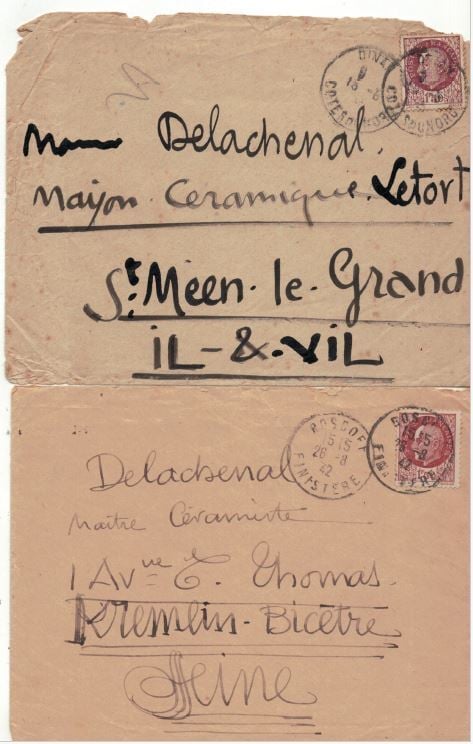 DINA
18 -8
COTES DU NORD
Delachenal.
Maison Ceramique. Letort
St Meen-le-Grand
iL-&-ViL
ROSCOFF
15-15
26 -8
42
FINISTERE
ROSCOFF
15-15
26 -8
42
Delachenal
Maître Céramiste
1 Avnue A. Thomas.
Kremlin-Bicêtre
Seine